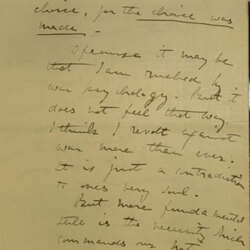 choice, for the choice was
made.
Of course it may be
that I am rushed by
war psychology. But it
does not feel that way.
I think I revolt against
war more than ever.
It is just a contradiction
to one's very soul.
But more fundamental
still is the necessity which
commands us. But